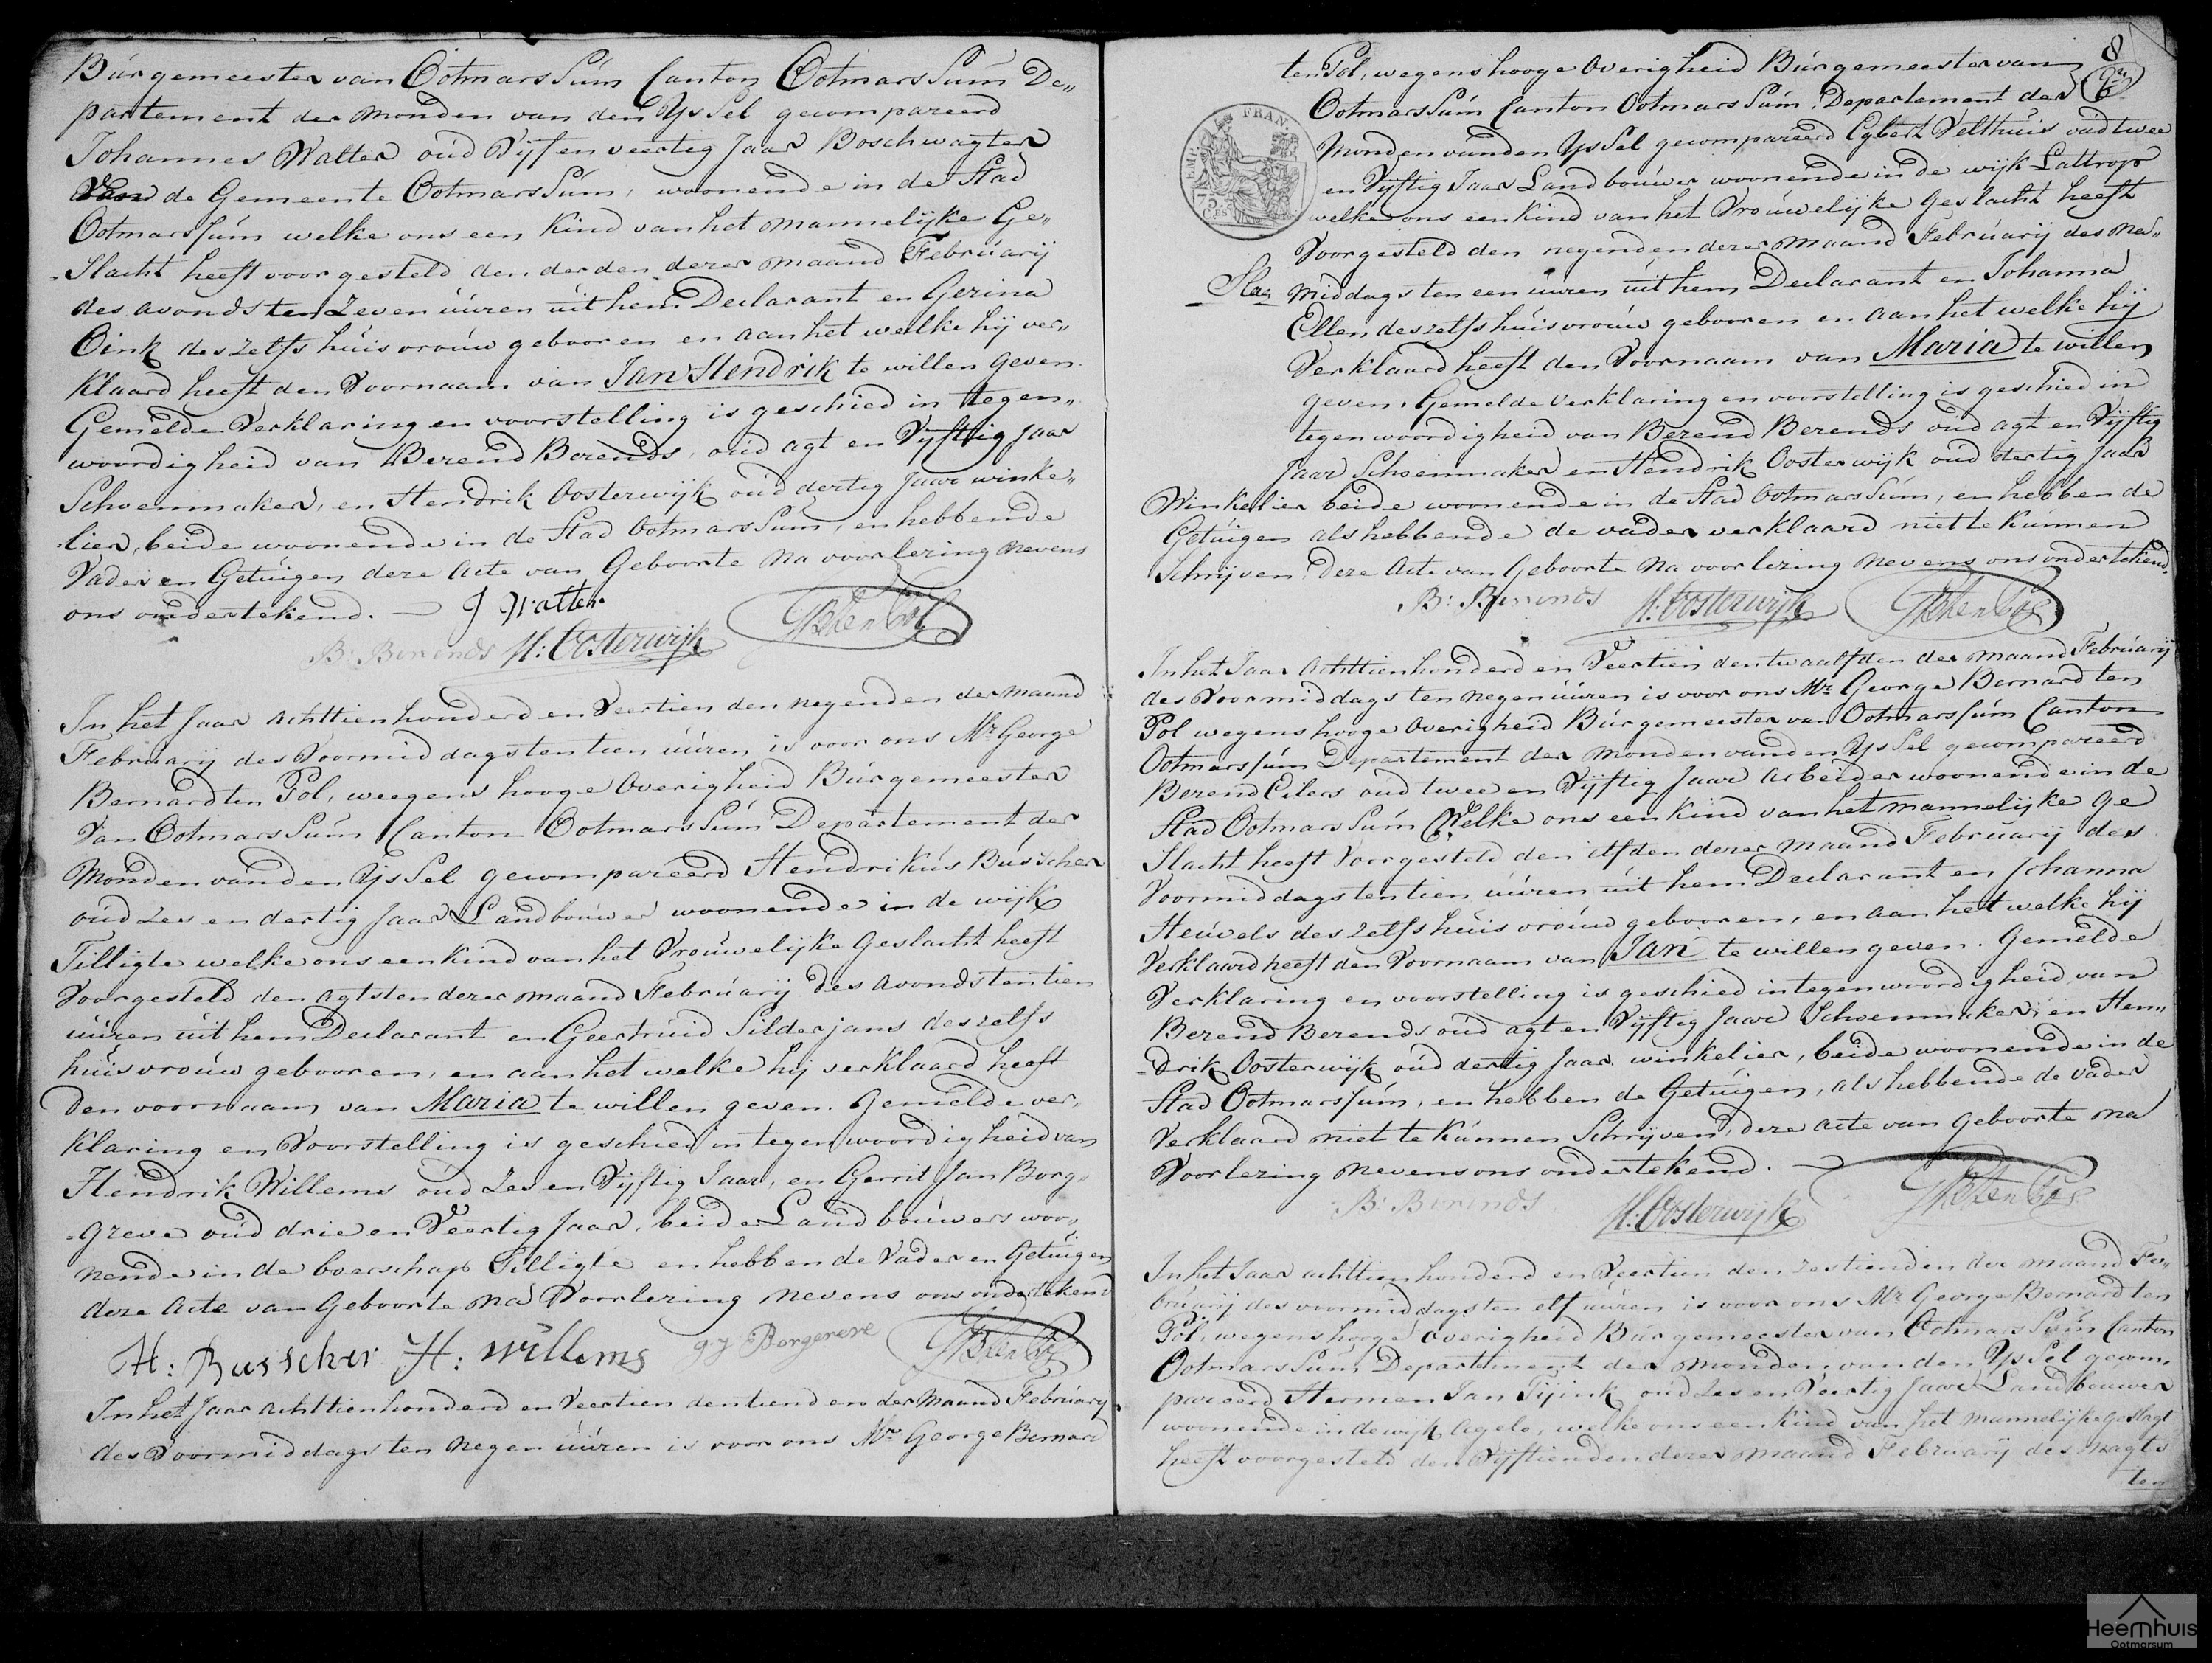 Burgemeester van Ootmarssum Canton Ootmarssum De„
partement der Monden van den Yssel gecompareerd
Johannes Walter oud Vijf en veertig Jaar Boschwagter
de Gemeente Ootmarssum, woonende in de Stad
Ootmarssum welke ons een Kind van het mannelijke Ge„
slacht heeft voorgesteld den derden dezer maand Februarij
des avonds ten Zeven uuren uit hem Declarant en Gezina
Oink deszelfs huisvrouw gebooren en aan het welke hij ver„
klaard heeft den Voornaam van Jan Hendrik te willen geven.
Gemelde Verklaring en voorstelling is geschied in tegen„
woordigheid van Berend Berends, oud agt en Vijftig Jaar
Schoenmaker, en Hendrik Oosterwijk oud dertig Jaar winke„
lier, beide woonende in de Stad Ootmarssum, en hebben de
Vader en Getuigen deze Acte van Geboorte na voorlezing nevens
ons ondertekend. — J Walter
B: Berends H: Oosterwijk GB ten Pol
In het Jaar achttienhonderd en Veertien den negenden der maand
Februarij des Voormiddags ten tien uuren is voor ons Mr. George
Bernard ten Pol, weegens hooge Overigheid Burgemeester
Van Ootmarssum Canton Ootmarssum Departement der
Monden van den Yssel gecompareerd Hendrikus Busscher
oud Zes en dertig Jaar Landbouwer woonende in de wijk
Tilligte welke ons een Kind van het Vrouwelijke Geslacht heeft
Voorgesteld den agtsten dezer maand Februarij des Avonds ten tien
uuren uit hem Declarant en Geertruid Silderjans deszelfs
huisvrouw gebooren, en aan het welke hij verklaard heeft
Den voornaam van Maria te willen geven. Gemelde ver„
klaring en Voorstelling is geschied in tegenwoordigheid van
Hendrik Willems oud Zes en Vijftig Jaar, en Gerrit Jan Borg„
greve oud drie en Veertig Jaar, beide Landbouwers woo„
nende in de boerschap Tilligte en hebben de Vader en Getuigen
deze Acte van Geboorte na Voorlezing nevens ons ondertekend
H: Busscher H: willems gj Borgereve GB ten Pol
In het Jaar achttienhonderd en Veertien den tienden der Maand Februarij
des Voormiddags ten negen uuren is voor ons Mr. George Bernard
8
ten Pol, wegens hooge Overigheid Burgemeester van
Ootmarssum Canton Ootmarssum Departement der
Monden van den Yssel gecompareerd Egbert Velthuis oud twee
en Vijftig Jaar Landbouwer woonende in de wijk Lattrop
welke ons een kind van het Vrouwelijke Geslacht heeft
Voorgesteld den negenden dezer maand Februarij des na„
middags ten een uuren uit hem Declarant en Johanna
Ellen deszelfs huisvrouw gebooren en aan het welke hij
Verklaard heeft den Voornaam van Maria te willen
geven. Gemelde verklaring en voorstelling is geschied in
tegenwoordigheid van Berend Berends oud agt en Vijftig
Jaar Schoenmaker en Hendrik Oosterwijk oud dertig Jaar
Winkelier beide woonende in de Stad Ootmarssum, en hebben de
Getuigen als hebbende de vader verklaard niet te kunnen
Schrijven deze Acte van Geboorte na voorlezing nevens ons ondertekend.
B: Berends H: Oosterwijk GB ten Pol
In het Jaar achttienhonderd en Veertien den twaalfden der maand Februarij
des Voormiddags ten negen uuren is voor ons Mr. George Bernard ten
Pol wegens hooge Overigheid Burgemeester van Ootmarssum Canton
Ootmarssum Departement der Monden van den Yssel gecompareerd
Berend Eilers oud twee en Vijftig Jaar Arbeider woonende in de
Stad Ootmarssum Welke ons een Kind van het mannelijke Ge
slacht heeft Voorgesteld den elfden dezer maand Februarij des
Voormiddags ten tien uuren uit hem Declarant en Johanna
Heuvels deszelfs huisvrouw gebooren, en aan het welke hij
Verklaard heeft den Voornaam van Jan te willen geven. Gemelde
Verklaring en voorstelling is geschied in tegenwoordigheid van
Berend Berends oud agt en Vijftig Jaar Schoenmaker, en Hen„
drik Oosterwijk oud dertig Jaar winkelier, beide woonende in de
Stad Ootmarssum, en hebben de Getuigen, als hebbende de vader
Verklaard niet te kunnen Schrijven, deze acte van Geboorte na
Voorlezing nevens ons ondertekend. —
B: Berends H: Oosterwijk GB ten Pol
In het Jaar achttienhonderd en Veertien den zestienden der maand Fe„
bruarij des voormiddags ten elf uuren is voor ons Mr. George Bernard ten
Pol, wegens hooge Overigheid Burgemeester van Ootmarssum Canton
Ootmarssum Departement der Monden van den Yssel gecom„
pareerd Hermen Jan Tijink oud Zes en Veertig Jaar Landbouwer
woonende in de wijk Agelo, welke ons een kind van het mannelijke geslagt
heeft voorgesteld den Vijftienden dezer maand Februarij des nagts
ten
FRAN.
75
Ces
Heemhuis
Ootmarsum